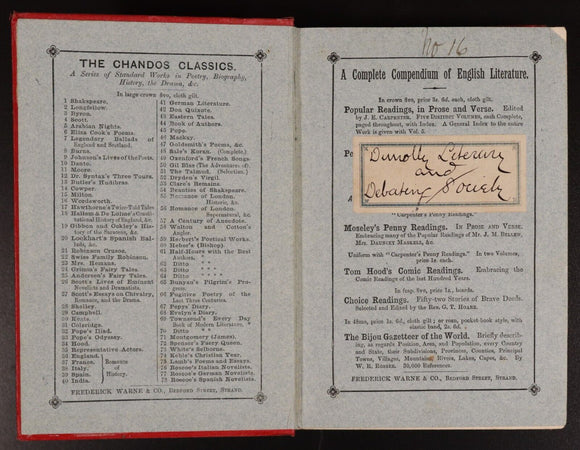 THE CHANDOS CLASSICS.
A Series of Standard Works in Poetry, Biography,
History, the Drama, &c.
In large crown 8vo, cloth gilt.
1 Shakspeare.
2 Longfellow.
3 Byron.
4 Scott.
5 Arabian Nights.
6 Eliza Cook's Poems.
7 Legendary Ballads of
England and Scotland.
8 Burns.
9 Johnson's Lives of the Poets.
10 Dante.
11 Moore.
12 Dr. Syntax's Three Tours.
13 Butler's Hudibras.
14 Cowper.
15 Milton.
16 Wordsworth.
17 Hawthorne's Twice-Told Tales
18 Hallam & De Lolme's Consti-
tutional History of England, &c.
19 Gibbon and Ockley's His-
tory of the Saracens, &c.
20 Lockhart's Spanish Bal-
lads, &c.
21 Robinson Crusoe.
22 Swiss Family Robinson.
23 Mrs. Hemans.
24 Grimm's Fairy Tales.
25 Andersen's Fairy Tales.
26 Scott's Lives of Eminent
Novelists and Dramatists.
27 Scott's Essays on Chivalry,
Romance, and the Drama.
28 Shelley.
29 Campbell.
30 Keats.
31 Coleridge.
32 Pope's Iliad.
33 Pope's Odyssey.
34 Hood.
35 Representative Actors.
36 England.
37 France.
38 Italy.
39 Spain.
40 India.
Romance
of
History.
41 German Literature.
42 Don Quixote.
43 Eastern Tales.
44 Book of Authors.
45 Pope.
46 Mackay.
47 Goldsmith's Poems, &c.
48 Sale's Koran. (Complete.)
49 Oxenford's French Songs.
50 Gil Blas (The Adventures of).
51 The Talmud. (Selection.)
52 Dryden's Virgil.
53 Clare's Remains.
54 Beauties of Shakspeare.
55 Romance of London.
Historic, &c.
56 Romance of London.
Supernatural, &c.
57 A Century of Anecdote.
58 Walton and Cotton's
Angler.
59 Herbert's Poetical Works.
60 Heber's (Bishop).
61 Half-Hours with the Best
Authors.
62 Ditto
63 Ditto
64 Ditto
65 Bunyan's Pilgrim's Pro-
gress.
66 Fugitive Poetry of the
Last Three Centuries.
67 Pepys' Diary.
68 Evelyn's Diary.
69 Townsend's Every Day
Book of Modern Literature.
70 Ditto
71 Montgomery (James).
72 Spenser's Faery Queen.
73 White's Selborne.
74 Keble's Christian Year.
75 Lamb's Poems and Essays.
76 Roscoe's Italian Novelists.
77 Roscoe's German Novelists.
78 Roscoe's Spanish Novelists.
FREDERICK WARNE & CO., BEDFORD STREET, STRAND.
No. 16
A Complete Compendium of English Literature.
In crown 8vo, price 3s. 6d. each, cloth gilt.
Popular Readings, in Prose and Verse. Edited
by J. E. CARPENTER. FIVE DISTINCT VOLUMES, each Complete,
paged throughout, with Index. A General Index to the entire
Work is given with Vol. 5.
Literary
and
Debating Society
"Carpenter's Penny Readings."
Moseley's Penny Readings. IN PROSE AND VERSE.
Embracing many of the Popular Readings of Mr. J. M. BELLEW,
MRS. DAUNCEY MASKELL, &c.
Uniform with "Carpenter's Penny Readings." In two Volumes,
price 1s. each.
Tom Hood's Comic Readings. Embracing the
Comic Readings of the last Hundred Years.
In fcap. 8vo, price 1s., boards.
Choice Readings. Fifty-two Stories of Brave Deeds.
Selected and Edited by the REV. G. T. HOARE.
In 48mo, price 1s. 6d., cloth gilt; or roan, pocket-book style, with
elastic band, 2s. 6d.
The Bijou Gazetteer of the World. Briefly describ-
ing, as regards Position, Area, and Population, every Country
and State, their Subdivisions, Provinces, Counties, Principal
Towns, Villages, Mountains, Rivers, Lakes, Capes, &c. By
W. H. ROSSER. 30,000 References.
FREDERICK WARNE & CO., BEDFORD STREET, STRAND.